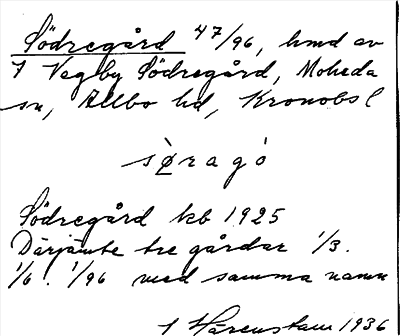 Södregård 47/96, hmd av
7 Vegby Södregård, Moheda
sn, Allbo hd, Kronobs l
sø̀ragó
Södregård kb 1925
Därjämte tre gårdar 1/3.
1/6. 1/96 med samma namn
J Hårenstam 1936